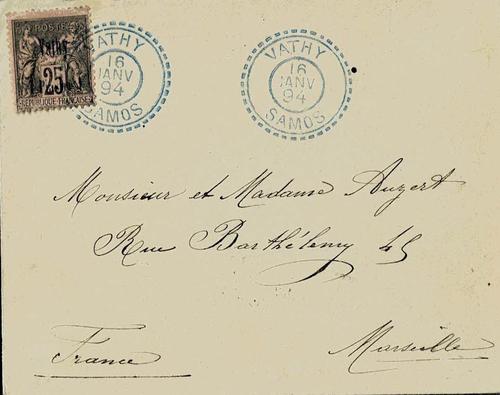 POSTES
Vathy
25
REPUBLIQUE FRANCAISE
VATHY
16
JANV
94
SAMOS
VATHY
16
JANV
94
SAMOS
Monsieur et Madame Auzert
Rue Barthélemy 45
France
Marseille